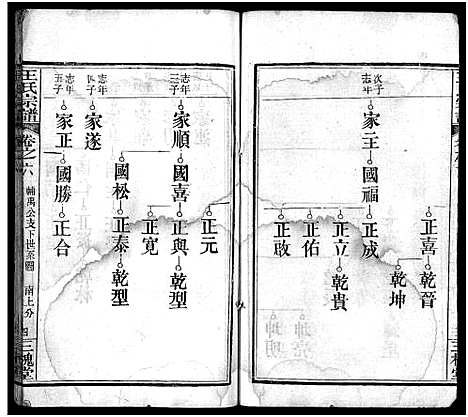 次子
志年
家王
國福
正成
正喜
乾晉
乾坤
正立
乾貴
正佑
正啟
志年
三子
家順
國喜
正元
正興
乾型
正寬
國松
正泰
乾型
志年
四子
家遂
志年
五子
家正
國勝
正合
王氏宗譜
卷之六
輔禹公支下世系圖
南上分
四
三槐堂